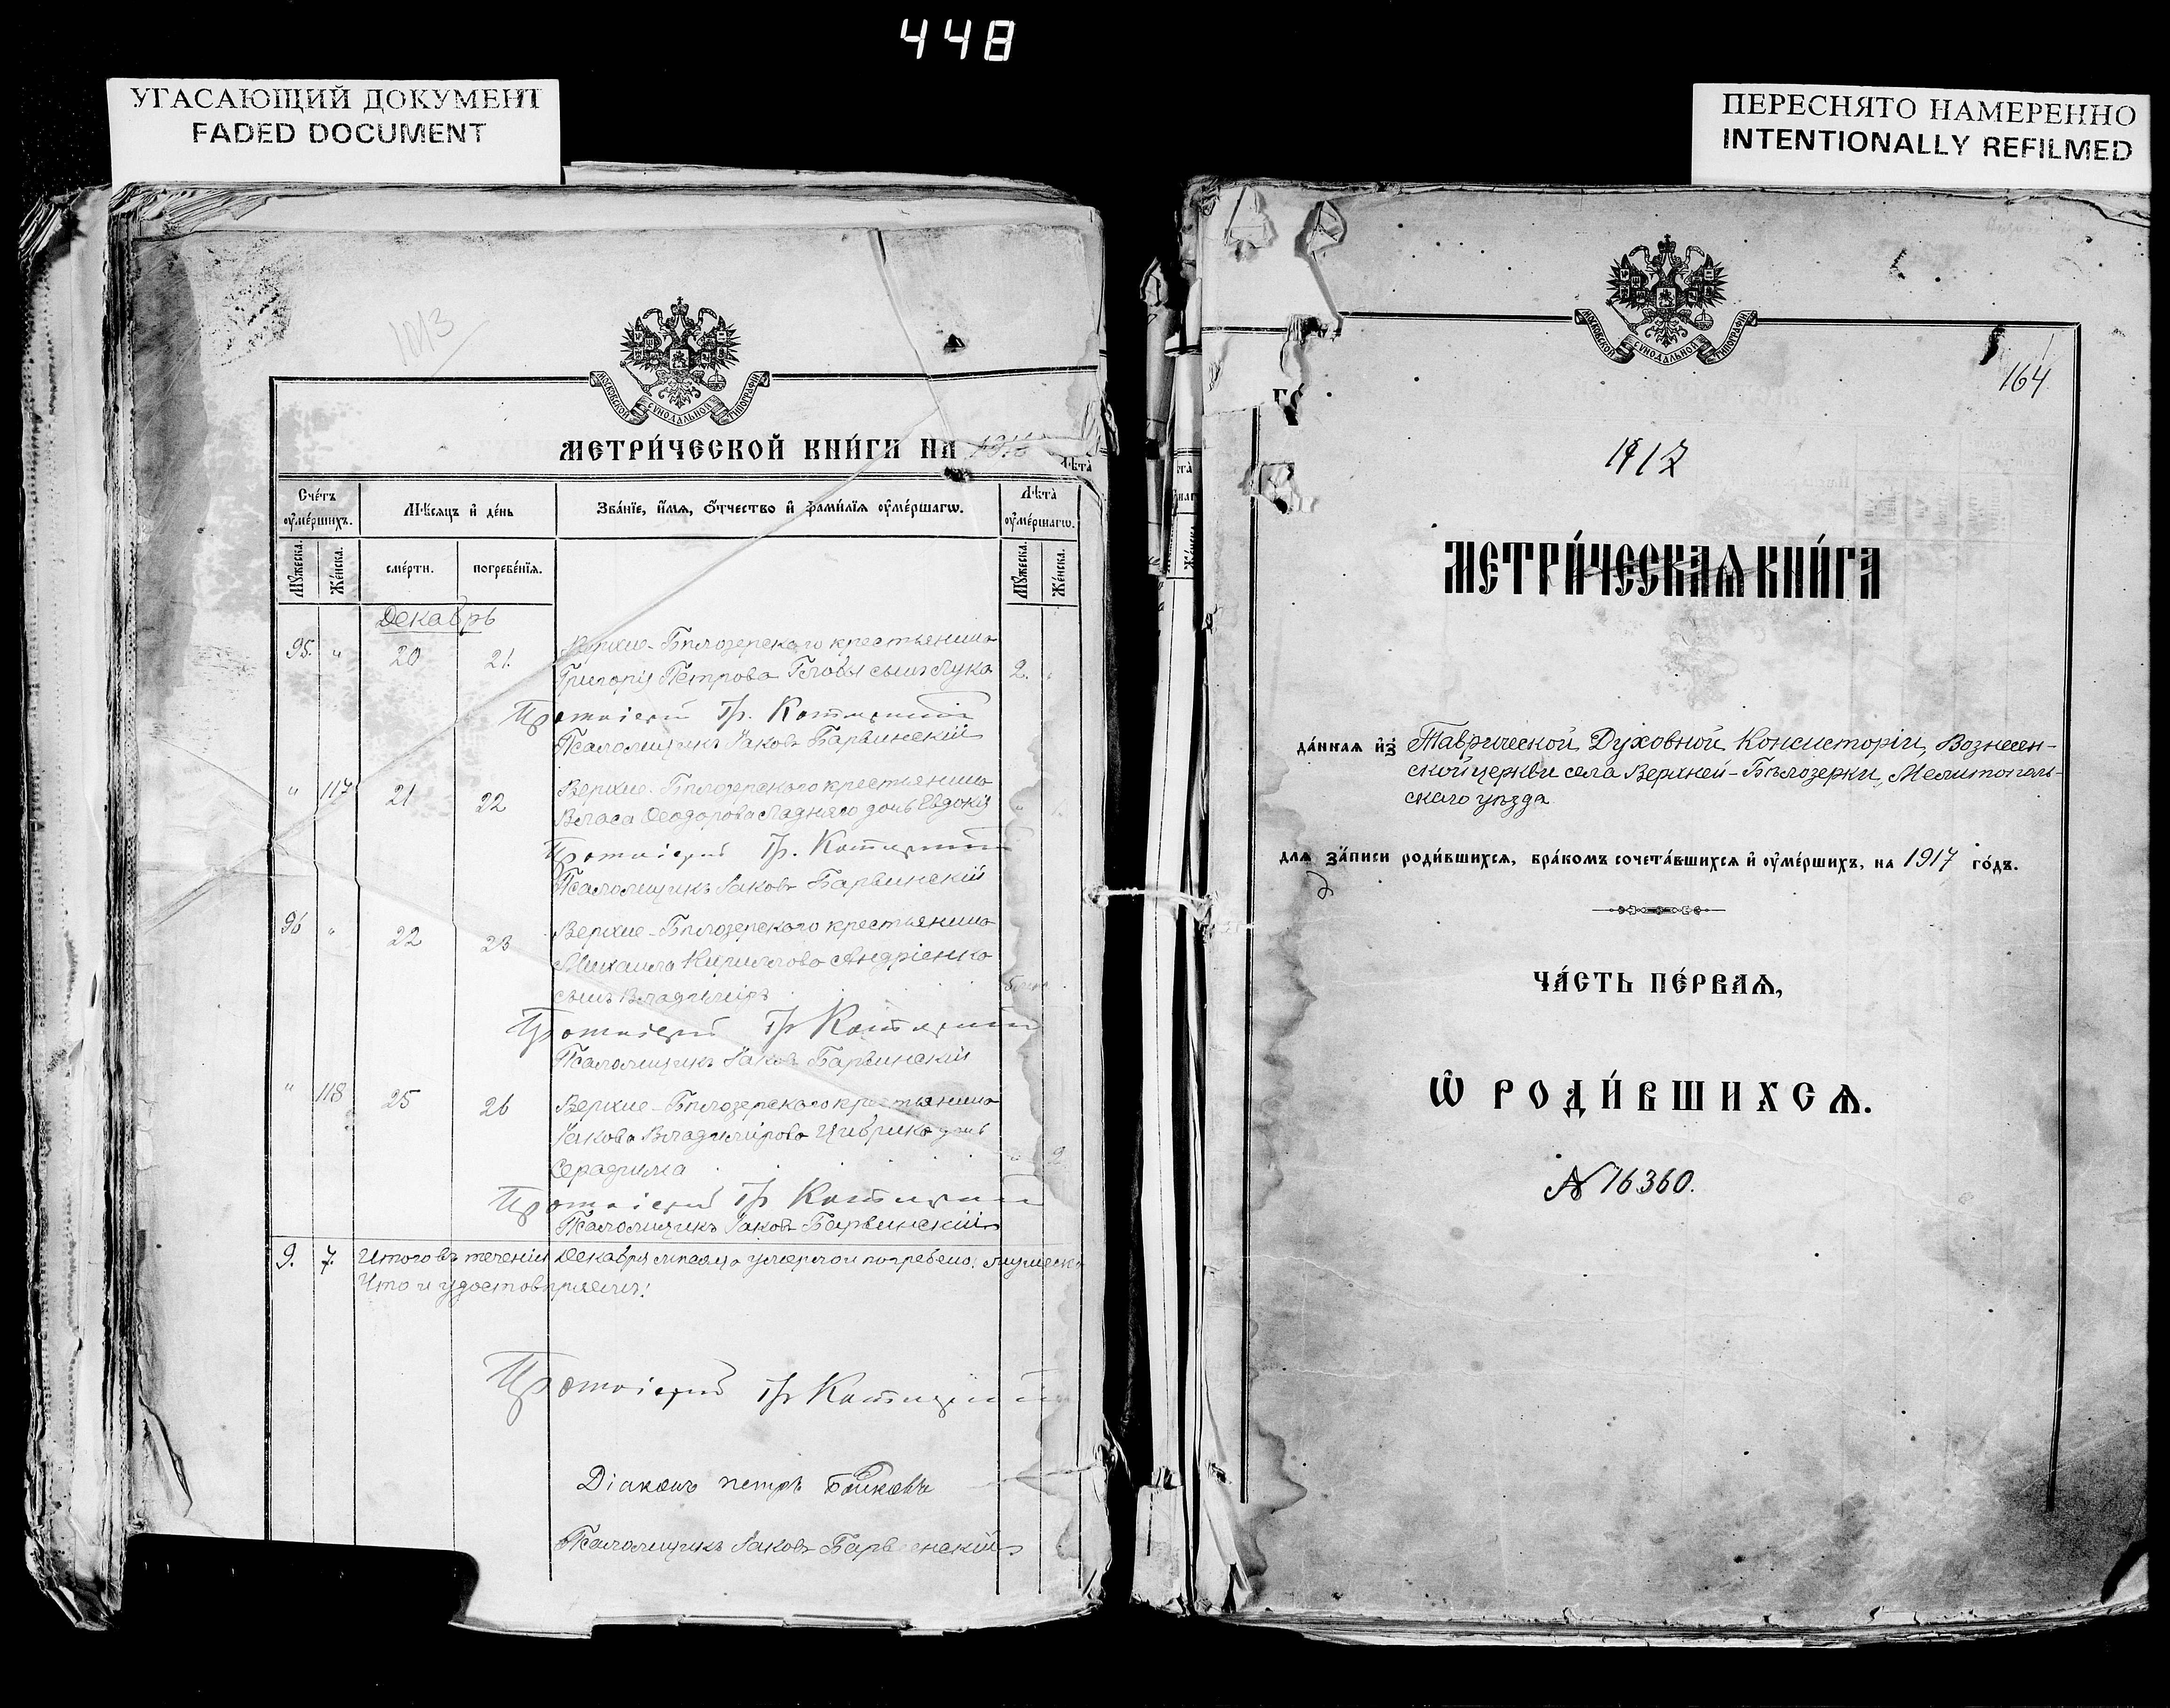 448
УГАСАЮЩИЙ ДОКУМЕНТ
FADED DOCUMENT
ПЕРЕСНЯТО НАМЕРЕННО
INTENTIONALLY REFILMED
МОСКОВСКОЙ СѴНОДАЛЬНОЙ ТИПОГРАФІИ
МЕТРИ́ЧЕСКОЙ КНИ́ГИ НА
Сче́тъ ᲂу҆ме́ршихъ.
Мѣ́сяцъ и҆ де́нь
Зва́нїе, и҆́мѧ, ѻ҆́тчество и҆ фами́лїѧ ᲂу҆ме́ршагѡ.
Лѣта̀ ᲂу҆ме́ршагѡ.
Мꙋ́жеска.
Же́нска.
сме́рти.
погребе́нїѧ.
Мꙋ́жеска.
Же́нска.
Декабрь
95. " 20 21. Верхне-Бѣлозерскаго крестьянина
Григорія Петрова Головы сынъ Лука 2. "
Протоіерей Гр.
Псаломщикъ Іаковъ Барвинскій
" 117 21 22 Верхне-Бѣлозерскаго крестьянина
Власа Ѳеодорова Ладняго дочь Евдокія "
Протоіерей Гр.
Псаломщикъ Іаковъ Барвинскій
96 " 22 23 Верхне-Бѣлозерскаго крестьянина
Михаила Кириллова Андріенко
сынъ Владиміръ
Протоіерей Гр
Псаломщикъ Іаковъ Барвинскій
" 118 25 26 Верхне-Бѣлозерскаго крестьянина
Іакова Владимірова Циврика дочь
Серафима " 2
Протоіерей Гр
Псаломщикъ Іаковъ Барвинскій
9. 7. Итого въ теченіи Декабря мѣсяца умерло и погребено:
Что и удостовѣряемъ:
Протоіерей Гр
Діаконъ Петръ
Псаломщикъ Іаковъ Барвинскій
МОСКОВСКОЙ СѴНОДАЛЬНОЙ ТИПОГРАФІИ
164
1917
МЕТРИ́ЧЕСКАѦ КНИ́ГА
да́нная и҆з̾ Таврической Духовной Консисторіи, Вознесен-
ской церкви села Верхней-Бѣлозерки, Мелитополь-
скаго уѣзда
для за́писи роди́вшихся, бра́комъ сочета́вшихся и҆ ᲂу҆ме́ршихъ, на 1917 го́дъ.
ЧА́СТЬ ПЕ́РВАѦ,
Ѽ РОДИ́ВШИХСѦ.
№ 16360.